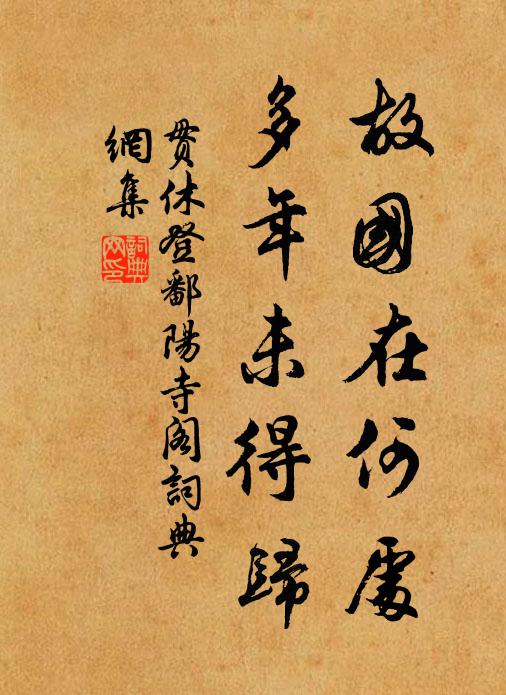 故國在何處
多年未得歸
貫休登鄱陽寺閣詞典
網集
詞典
网印